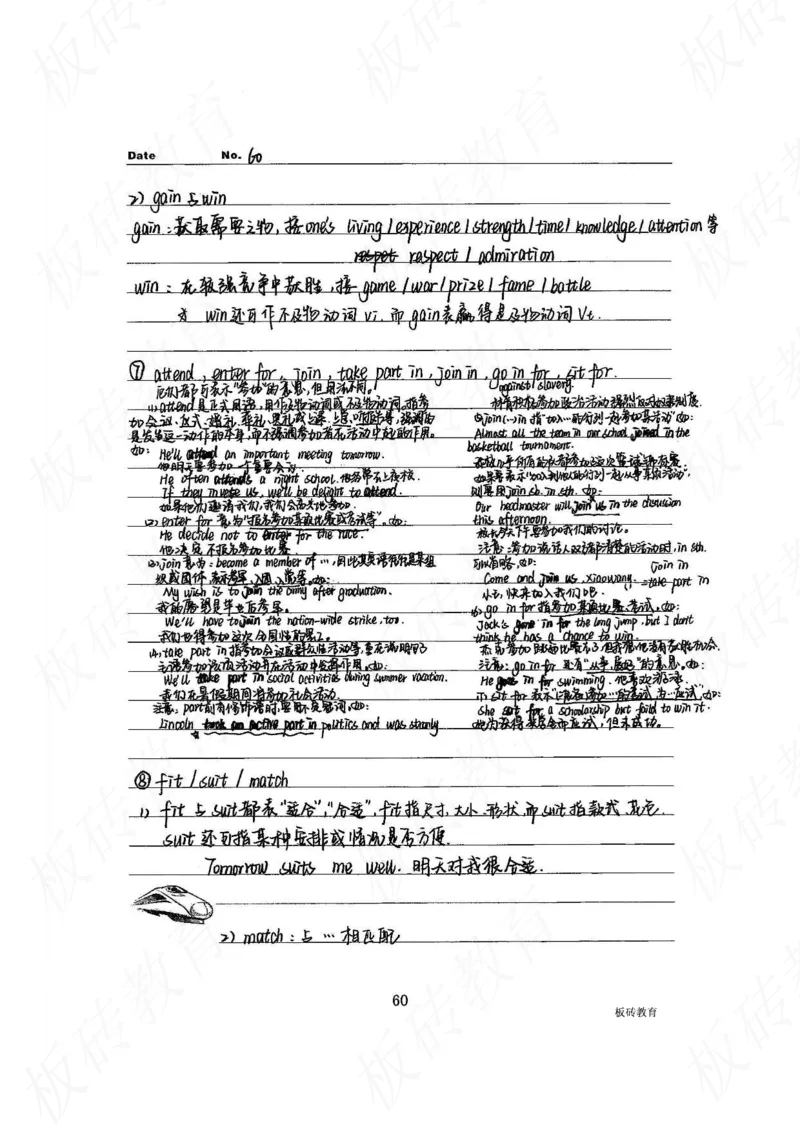 Date No. 60
2) gain 与 win
gain：获取需要之物，接one's living / experience / strength / time / knowledge / attention 等
respect / admiration
win：在较强竞争中获胜，接 game / war / prize / fame / battle
win还可作不及物动词 vi. 而 gain表赢得是及物动词 Vt.
⑦ attend , enter for , join , take part in , join in , go in for , sit for.
它们都可表示"参加"的意思，但用法不同。
(1) attend是正式用语，用作及物动词或不及物动词。指参
加会议、仪式、婚礼、葬礼、典礼或上课、上学、听报告等。强调的
是发生这一动作的本身，而不强调参加者在活动中起的作用。
如： He'll attend an important meeting tomorrow.
他明天要参加一个重要会议。
He often attends a night school. 他经常上夜校。
If they invite us, we'll be delight to attend.
如果他们邀请我们，我们会高兴地参加。
(2) enter for 意为"报名参加某项比赛或考试等"。如：
He decide not to enter for the race.
他决定不报名参加比赛
(3) join 意为：become a member of …，因此其宾语往往是某组
织或团体，表示参军、入团、入党等。如：
My wish is to join the army after graduation.
我的愿望是毕业后参军。
We'll have to join the nation-wide strike, too.
我们也得参加这次全国性的罢工。
(4) take part in 指参加会议或群众性活动等，重在说明句子
主语参加该项活动并在活动中发挥作用。如：
We'll take part in social activities during summer vacation.
我们在暑假期间将参加社会活动。
注意：part前有修饰语时，要用不定冠词。如：
Lincoln took an active part in politics and was strongly
against slavery.
林肯积极参加政治活动，强烈反对奴隶制度。
⑤join (…) in 指"加入…的行列一起参加某活动"如：
Almost all the team in our school joined in the
basketball tournament.
我校几乎所有的队都参加了这次篮球锦标赛。
如果要表示"加入到他人的行列一起从事某项活动"，
则要用join sb. in sth. 如：
Our headmaster will join us in the discussion
this afternoon.
校长今天下午要参加我们的讨论。
注意：参加说话人双方都清楚的活动时，in sth.
可以省略，如： join in
Come and join us, Xiaowang. =take part in
小王，快来加入我们吧。
(6) go in for 指参加某项比赛、考试。如：
Jack's gone in for the long jump, but I don't
think he has a chance to win.
杰克参加跳远比赛了，但我看他没有获胜机会。
注意：go in for 还有"从事，喜好"的意思。如：
He goes in for swimming. 他喜欢游泳。
(7) sit for 表示"报名参加…的考试"，为"应试"，如：
She sat for a scholarship but faild to win it.
她为获得奖学金而应试，但未成功。
⑧ fit / suit / match
1) fit 与 suit都表"适合"，"合适"，fit指尺寸、大小、形状，而 suit 指款式、花色.
suit 还可指某种安排或情况是否方便.
Tomorrow suits me well. 明天对我很合适.
2) match：与 … 相匹配
60
板砖教育